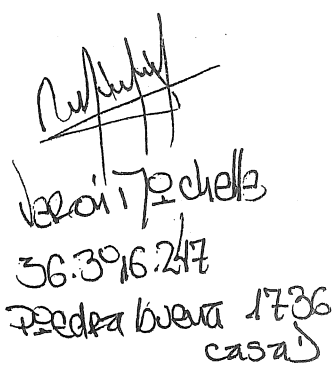 Verón Michelle
36.316.247
Piedra buena 1736
casa